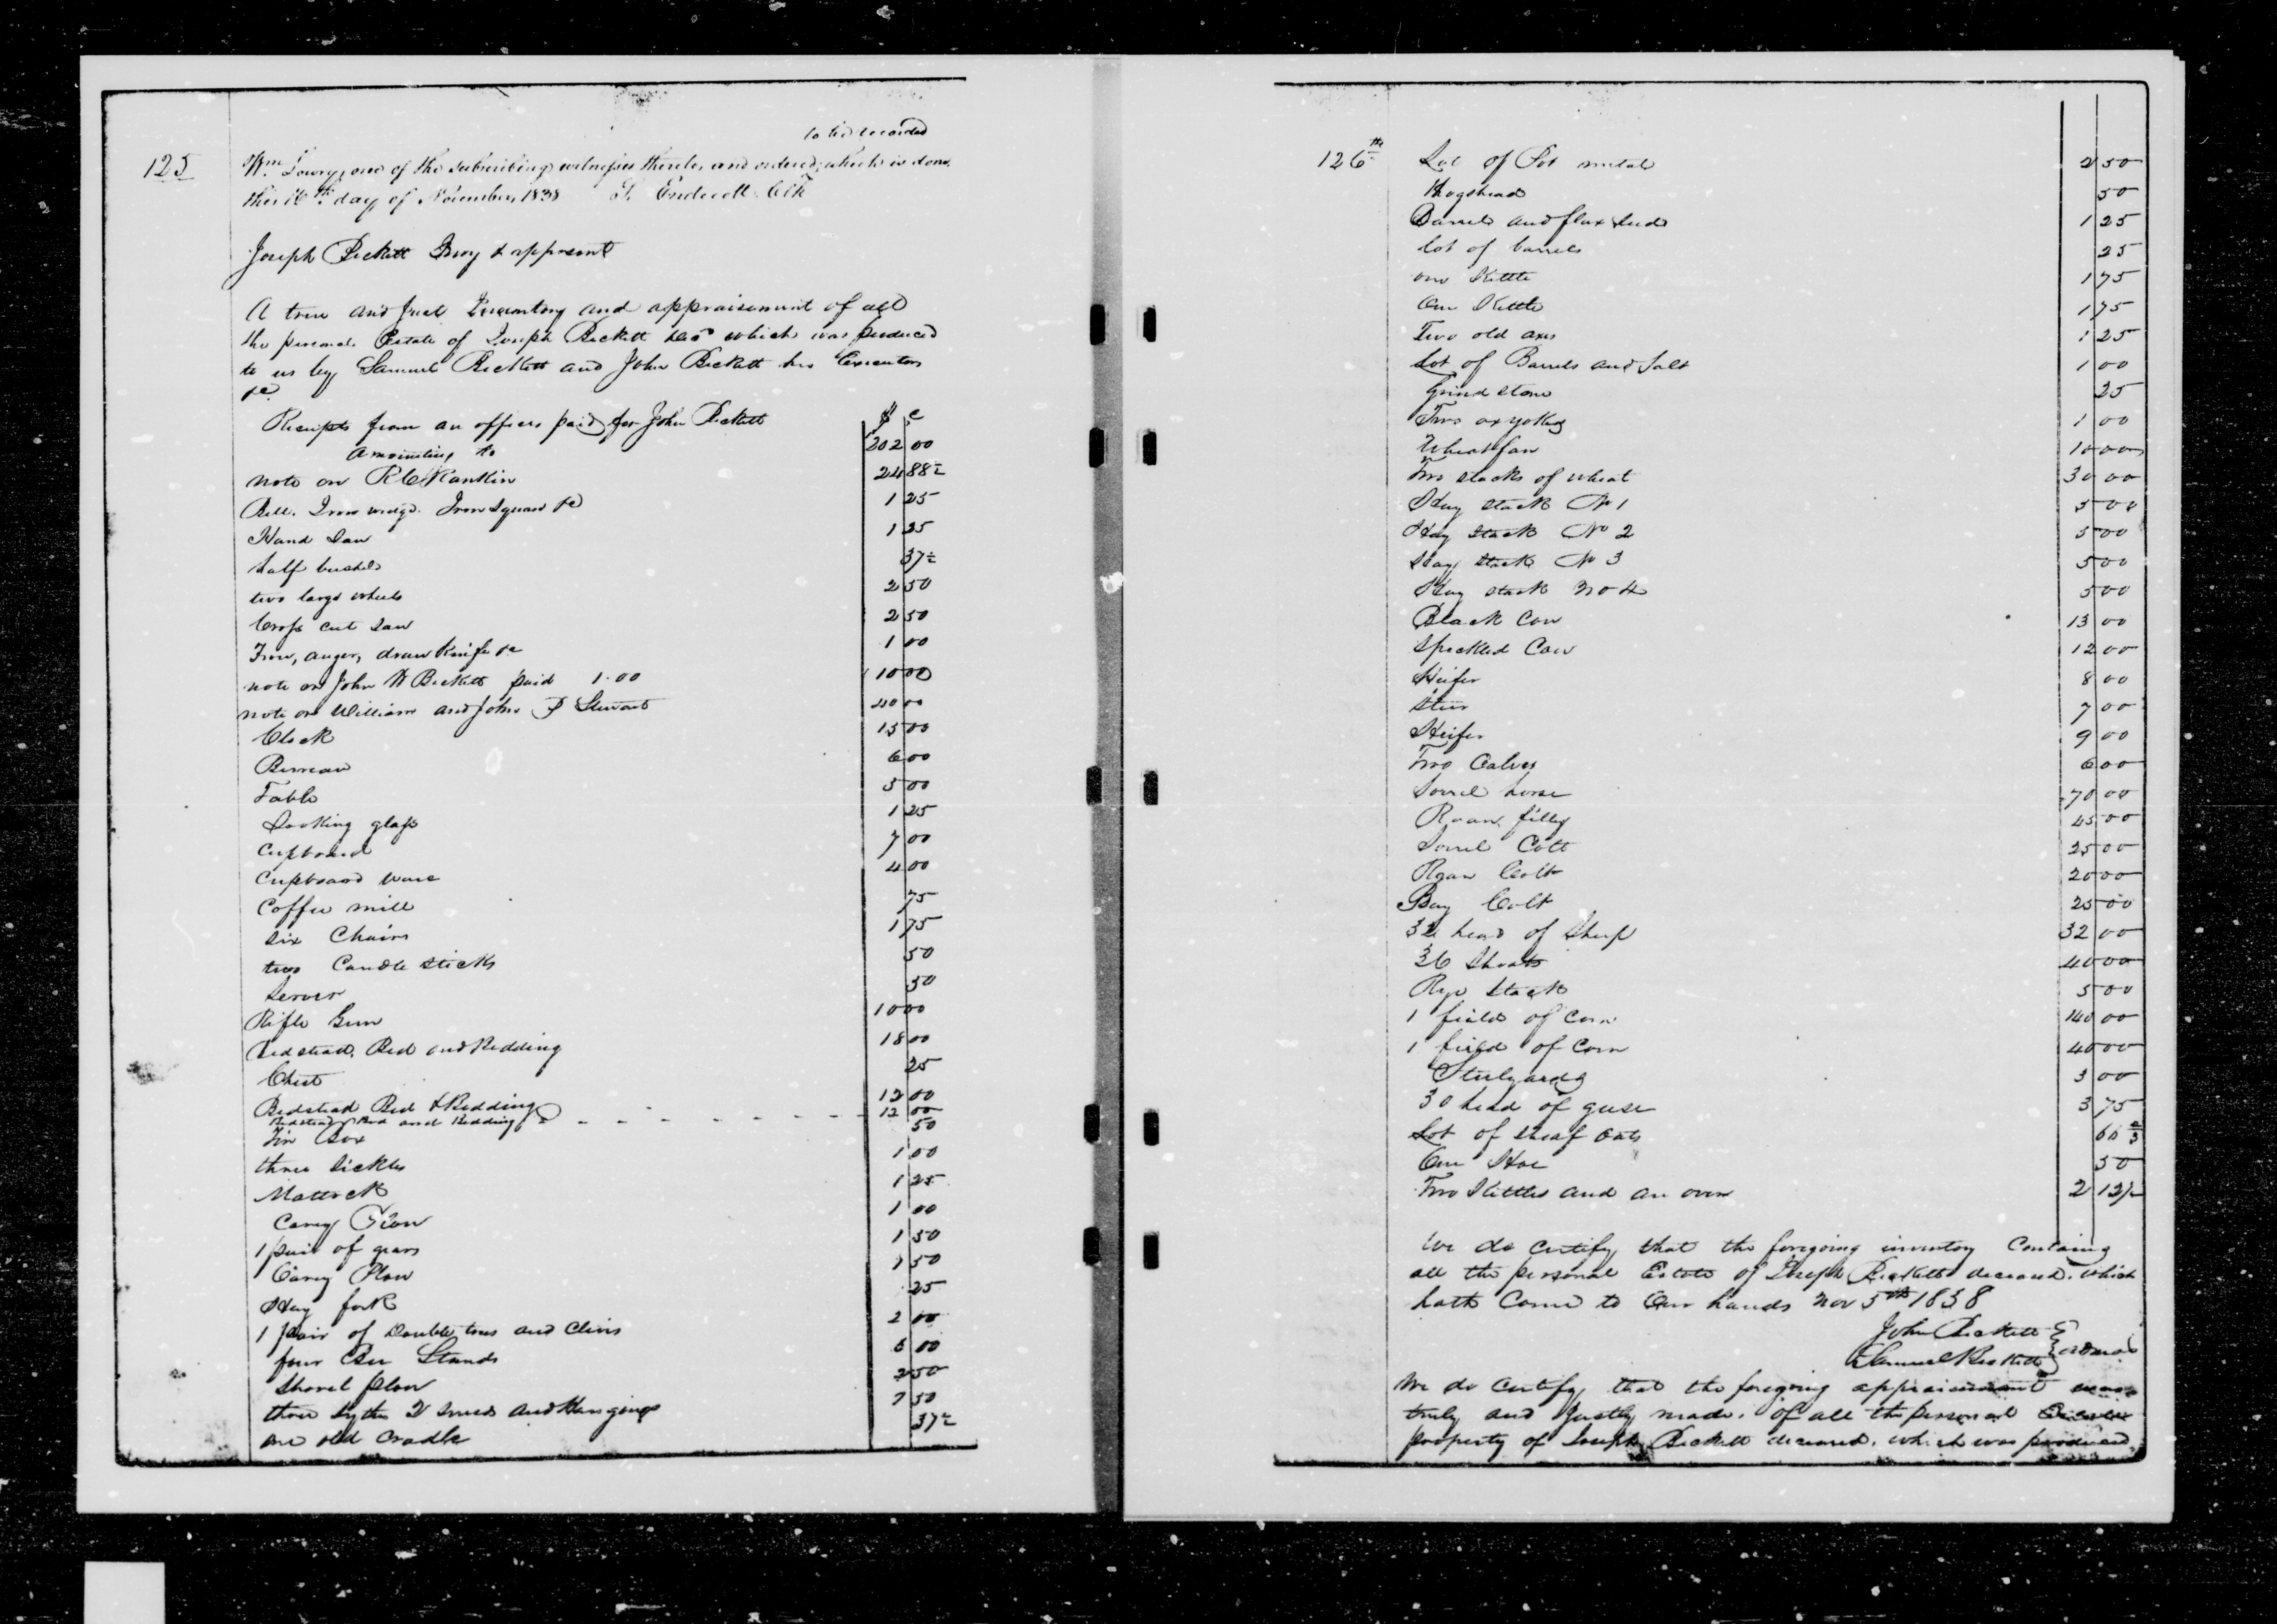 to be recorded
125 Wm Lowry, one of the subscribing witnesses thereto, and ordered, which is done,
this 16th day of November 1838 T. Endicott Clk
Joseph Beckett Invy & appresmt
A true and Just Inventory and appraisement of all
the personal Estate of Joseph Beckett decd which was produced
to us by Samuel Beckett and John Beckett his Executors
&c
$ c
Receipts from an officer paid for John Beckett
amounting to 202 00
note on R C Rankin 24 88½
Bell. Iron wedge. Iron Square &c 1 25
Hand Saw 1 25
half bushel 37½
two large wheels 2 50
Cross cut Saw 2 50
Frow, auger, draw Knife &c 1 00
note on John A Beckett paid 1.00 10 00
note on William and John P Stewart 40 00
Clock 15 00
Bureau 6 00
Table 5 00
Looking glass 1 25
Cupboard 7 00
Cupboard ware 4 00
Coffee mill 75
six Chairs 1 75
two Candle sticks 50
Server 50
Rifle Gun 10 00
Bedstead, Bed and Bedding 18 00
Chest 25
Bedstead Bed & Bedding 12 00
Bedstead Bed and Bedding 12 00
Tin Box 50
three Sickles 1 00
Mattock 1 25
Carey Plow 1 00
1 pair of gears 1 50
Carey Plow 1 50
Hay fork 25
1 pair of Double trees and Clivis 2 00
four Bee Stands 6 00
Shovel plow 2 50
three sythes 2 sneeds and Hangings 7 50
one old Cradle 37½
126th Lot of Pot metal 2 50
Hogshead 50
Barrel and flax seed 1 25
lot of barrels 25
one Kettle 1 75
One Kettle 1 75
Two old axes 1 25
Lot of Barrels and Salt 1 00
Grind stone 25
Two ox yokes 1 00
Wheat fan 10 00
Two stacks of wheat 30 00
Hay stack No 1 5 00
Hay stack No 2 5 00
Hay stack No 3 5 00
Hay stack No 4 5 00
Black Cow 13 00
Speckled Cow 12 00
Heifer 8 00
Steer 7 00
Heifer 9 00
Two Calves 6 00
Sorrel horse 70 00
Roan filly 45 00
Sorrel Colt 25 00
Roan Colt 20 00
Bay Colt 25 00
32 head of Sheep 32 00
36 Shoats 40 00
Rye Stack 5 00
1 field of Corn 140 00
1 field of Corn 40 00
Steelyards 3 00
30 head of geese 3 75
Lot of sheaf Oats 66 2/3
One Hoe 50
Two Kettles and an oven 2 12½
We do certify that the foregoing inventory Containing
all the personal Estate of Joseph Beckett deceased. which
hath Come to Our hands Nov 5th 1838
John Beckett
Samuel Beckett
We do Certify, that the foregoing appraisement was
truly and Justly made. of all the personal Estate
property of Joseph Beckett deceased. which was produced